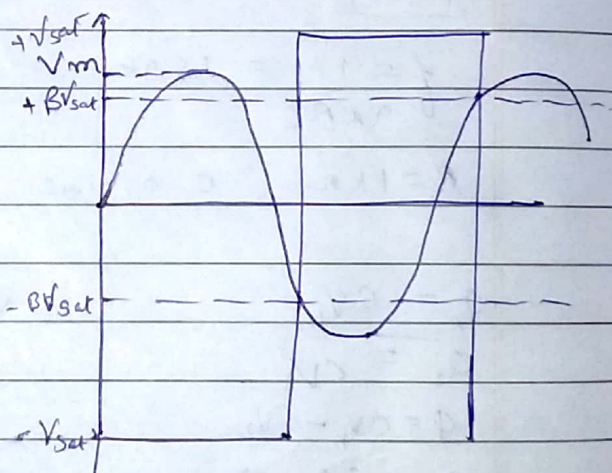 +Vsat
Vm
+ βVsat
- βVsat
- Vsat